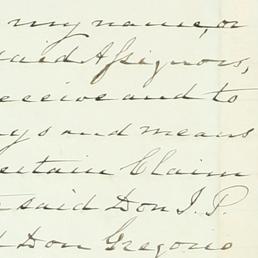 my name, or
said Assignors,
receive and to
ways and means
certain Claim
said Don J. P.
Don Gregorio